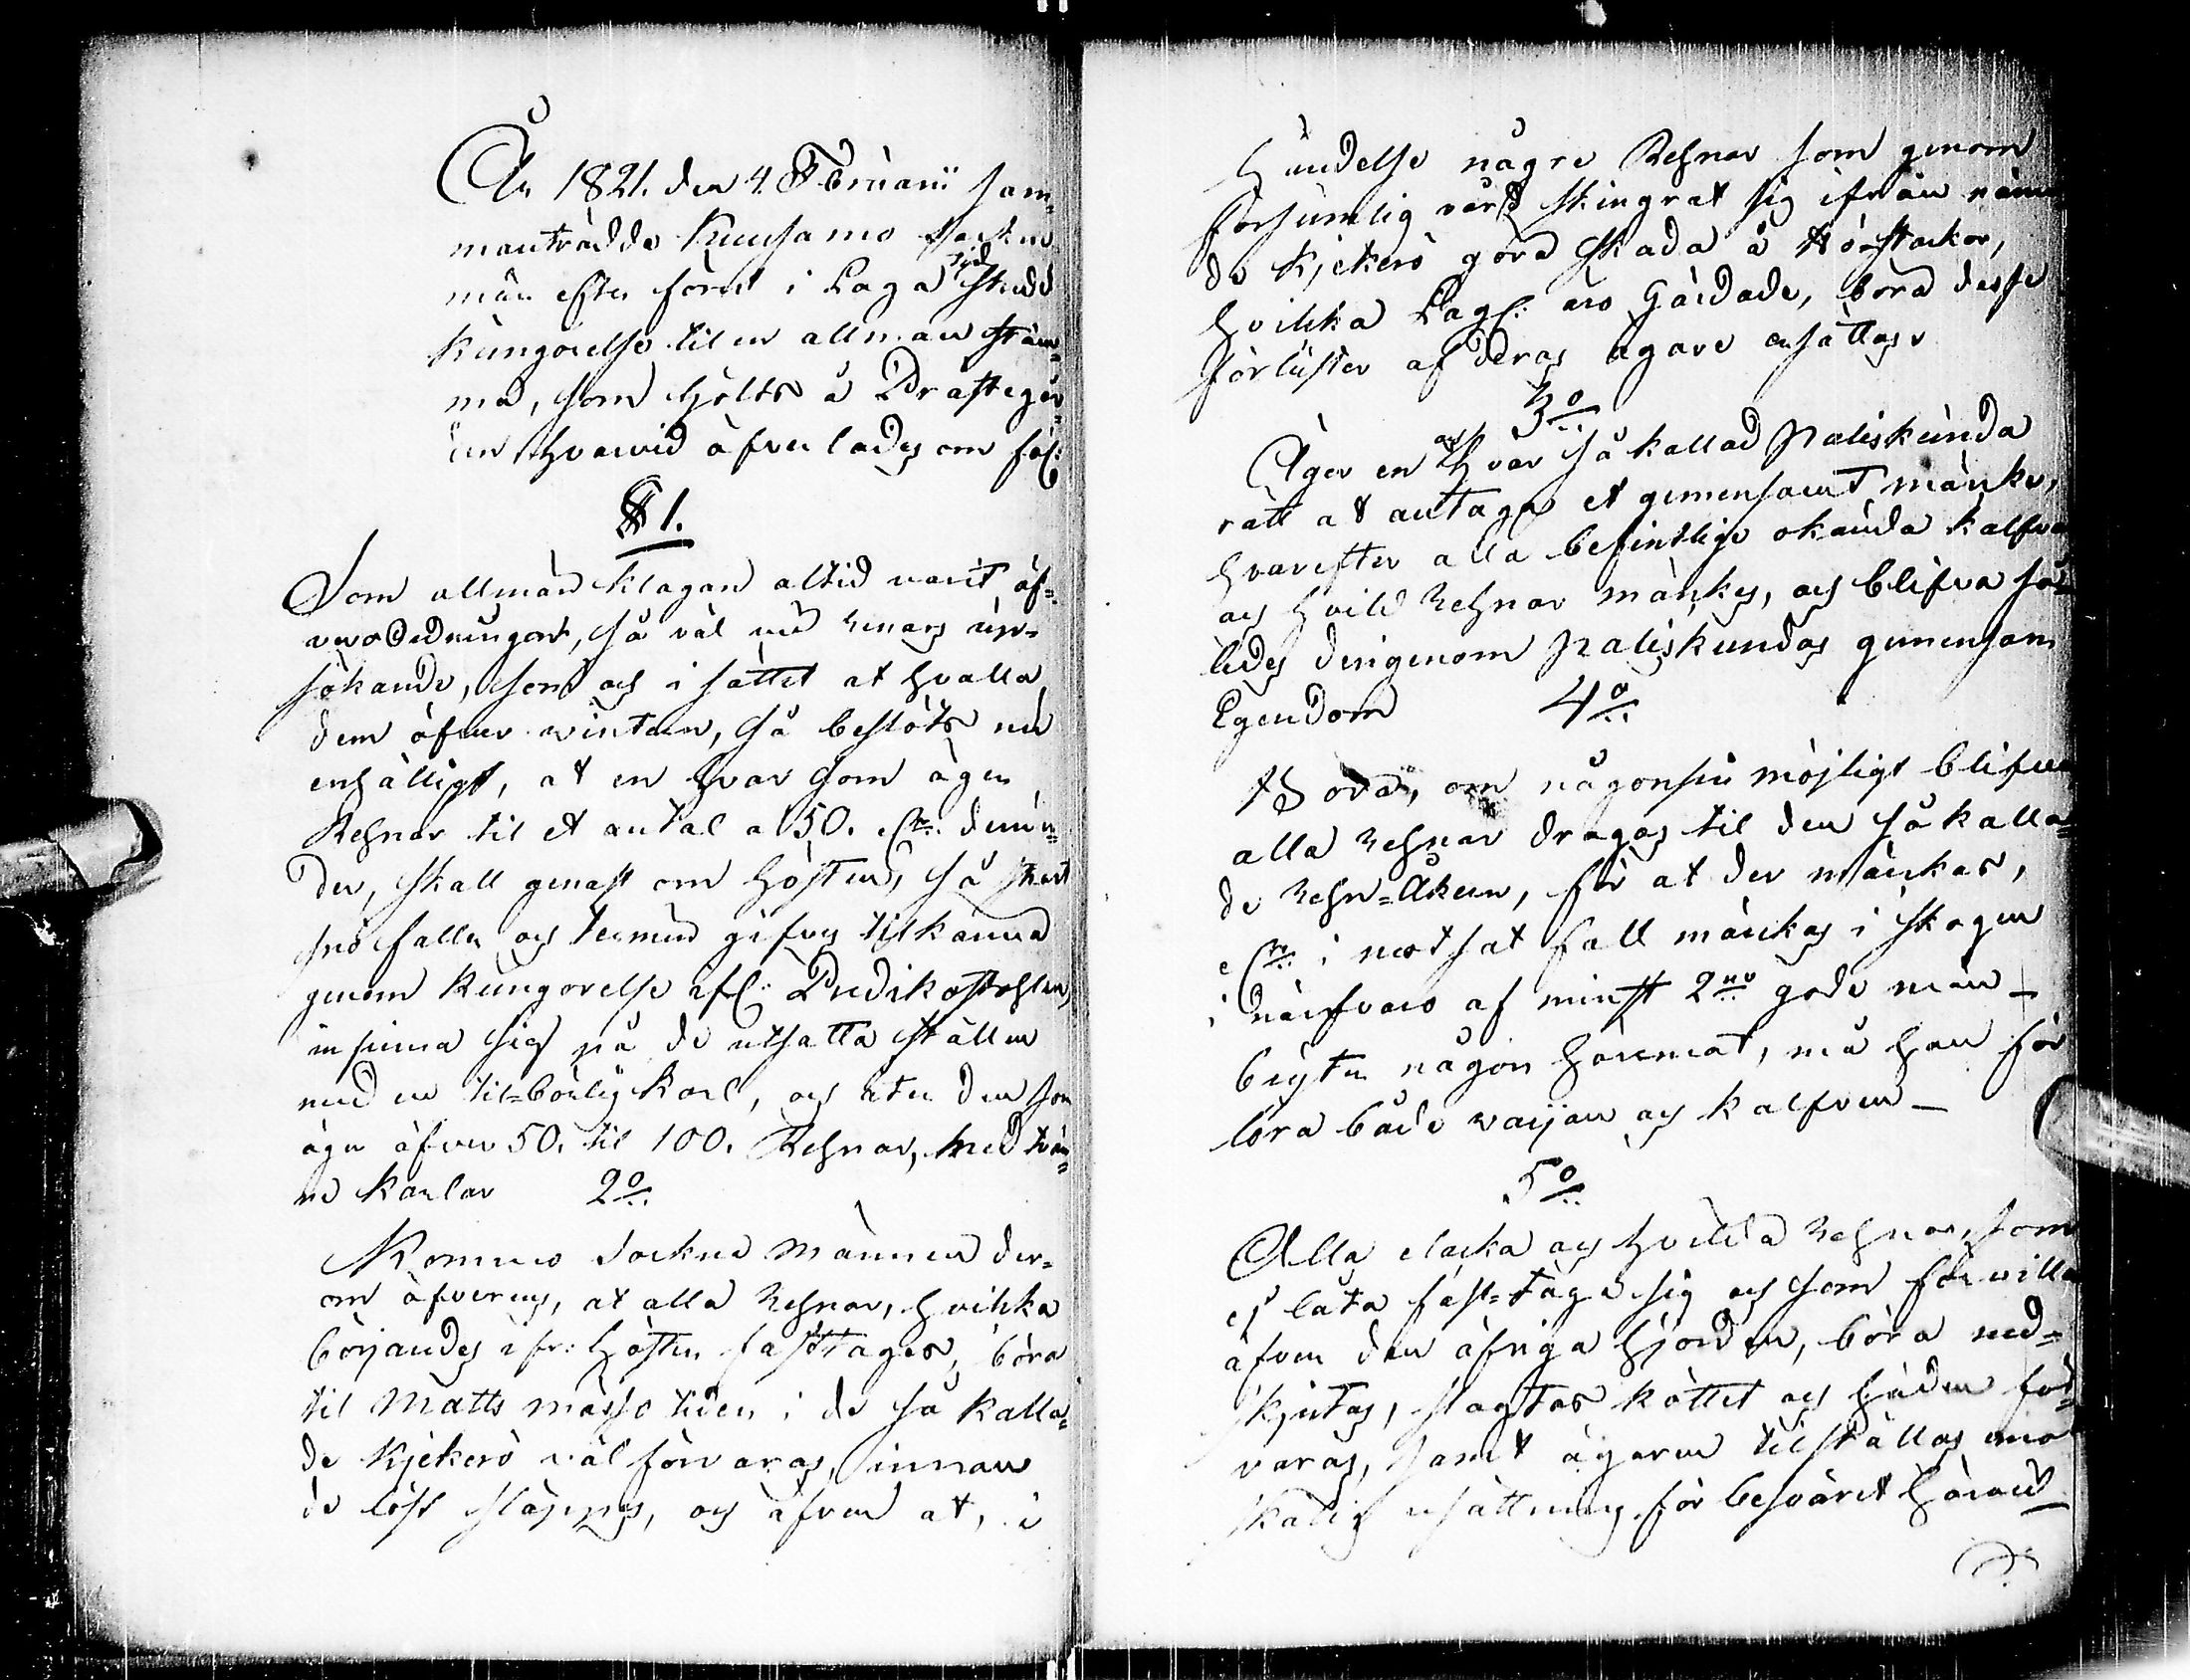 År 1821. den 4. Februarii sam=
manträdde Kuusamo Sockne
män efter förut i Laga tyd skedd
kungörelse til en allmän stäm=
ma, som hjölts å Prästegår=
den hvarvid öfver lades om föl:
§ 1.
Som allmän klagan altid varit öf=
ver oredningar, så väl med renars up=
sökande, som ock i sättet at hvalla
dem öfver wintern, så beslöts nu
enhälligt, at en hvar som äger
Rehnar til et antal a 50. elr. derun=
der, skall genast om hösten, så snart
snö faller och termin gifves tilkänna
genom kungörelse ifr: Predikostohlen,
infinna sig på de utsatta ställen
med en til=börlig karl, och åter den som
äger öfver 50. til 100. Rehnar, med två=
ne karlar 2o.
Kommo Sockne männen der=
om öfverens, at alla rehnar, hvilka
börjandes ifr: hösten fasttages, böra
til Matts mässo tiden i de så kalla=
de Kjekerö väl förvaras, innan
de löst släppas, och äfven at, i
händelse någre Rehnar som genom
försumlig vård skingrat sig ifrån näm
de Kjekerö göra skada å Höstackor,
hvilka Lagl: äro Gärdade, böra desse
förluster af deras ägare ersättas
3o.
Äger en och hvar så kallad paliskunda
rätt at antaga et gemensamt märke,
hvarefter alla befintlige okända kalfvar
och hvild rehnar märkes, och blifva så
ledes derigenom paliskundas gemensam
Egendom 4o.
Böra, om någonsin möjligt blifver
alla rehnar dragas til den så kalla=
de rehn=Åkern, för at der märkas,
elr. i motsat fall märkas i skogen
i närfvaro af minst 2ne gode män _
bryter någon häremot, må han för
lora både vaijan och kalfven _
5o.
Alla elacka och hvilda rehnar, som
ej låta fast=taga sig och som förvilla
äfven den öfriga hjorden, böra ned=
skjutas, slagtas köttet och huden för=
varas, samt ägaren tilställas mot
skälig ersättning för besväret härvid_